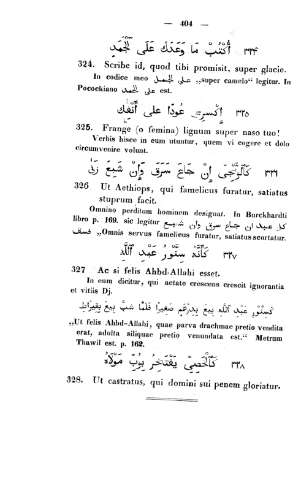 — 404 —
٣٢٤ أُكْتُبْ مَا وَعَدَكَ عَلَى ٱلْجَمْدِ
324. Scribe id, quod tibi promisit, super glacie.
In codice meo على الجمل „super camelo“ legitur. In
Pocockiano على الجمد est.
٣٢٥ اكْسِرِي عُودًا عَلَى أَنْفِكِ
325. Frange (o femina) lignum super naso tuo!
Verbis hisce in eum utuntur, quem vi cogere et dolo
circumvenire volunt.
٣٢٦ كَٱلزَّنْجِيِّ إِنْ جَاعَ سَرَقَ وَإِنْ شَبِعَ زَنَى
326 Ut Aethiops, qui famelicus furatur, satiatus
stuprum facit.
Omnino perditum hominem designat. In Burckhardti
libro p. 169. sic legitur كل عبد ان جاع سرق وان شبع
فسق „Omnis servus famelicus furatur, satiatus scortatur.
٣٢٧ كَأَنَّهُ سِنَّوْرُ عَبْدِ ٱللّٰهِ
327 Ac si felis Abbd-Allahi esset.
In eum dicitur, qui aetate crescens crescit ignorantia
et vitiis Dj.
كَسِنَّوْرِ عَبْدِ ٱللّٰهِ بِيعَ بِدِرْهَمٍ صَغِيرًا فَلَمَّا شَبَّ بِيعَ بِقِيرَاطِ
„Ut felis Abbd-Allahi, quae parva drachmae pretio vendita
erat, adulta siliquae pretio venundata est.“ Metrum
Thawil est. p. 162.
٣٢٨ كَٱلْخَصِيِّ يَفْتَخِرُ بِزُبِّ مَوْلَاهُ
328. Ut castratus, qui domini sui penem gloriatur.